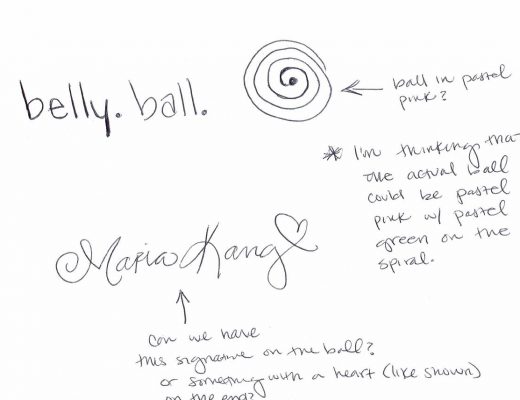 belly. ball.
ball in pastel
pink?
* I'm thinking tha
the actual ball
could be pastel
pink w/ pastel
green on the
spiral.
Maria Kang
can we have
this signature on the ball?
or something with a heart (like shown)
on the end?